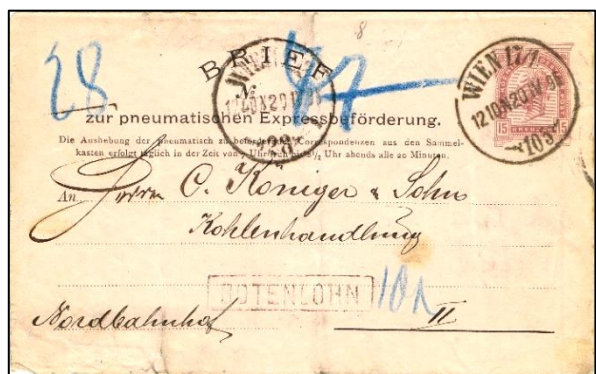 8
28 47
BRIEF
WIEN 17/1
12 10N 20 IV 96
*10 9*
15 KREUZER 15
zur pneumatischen Expressbeförderung.
Die Aushebung der pneumatisch zu befördernden Correspondenzen aus den Sammel-
kasten erfolgt täglich in der Zeit von 7 Uhr früh bis 9½ Uhr abends alle 20 Minuten.
An Herrn C. Königer & Sohn
Kohlenhandlung
BOTENLOHN 10
Nordbahnhof II